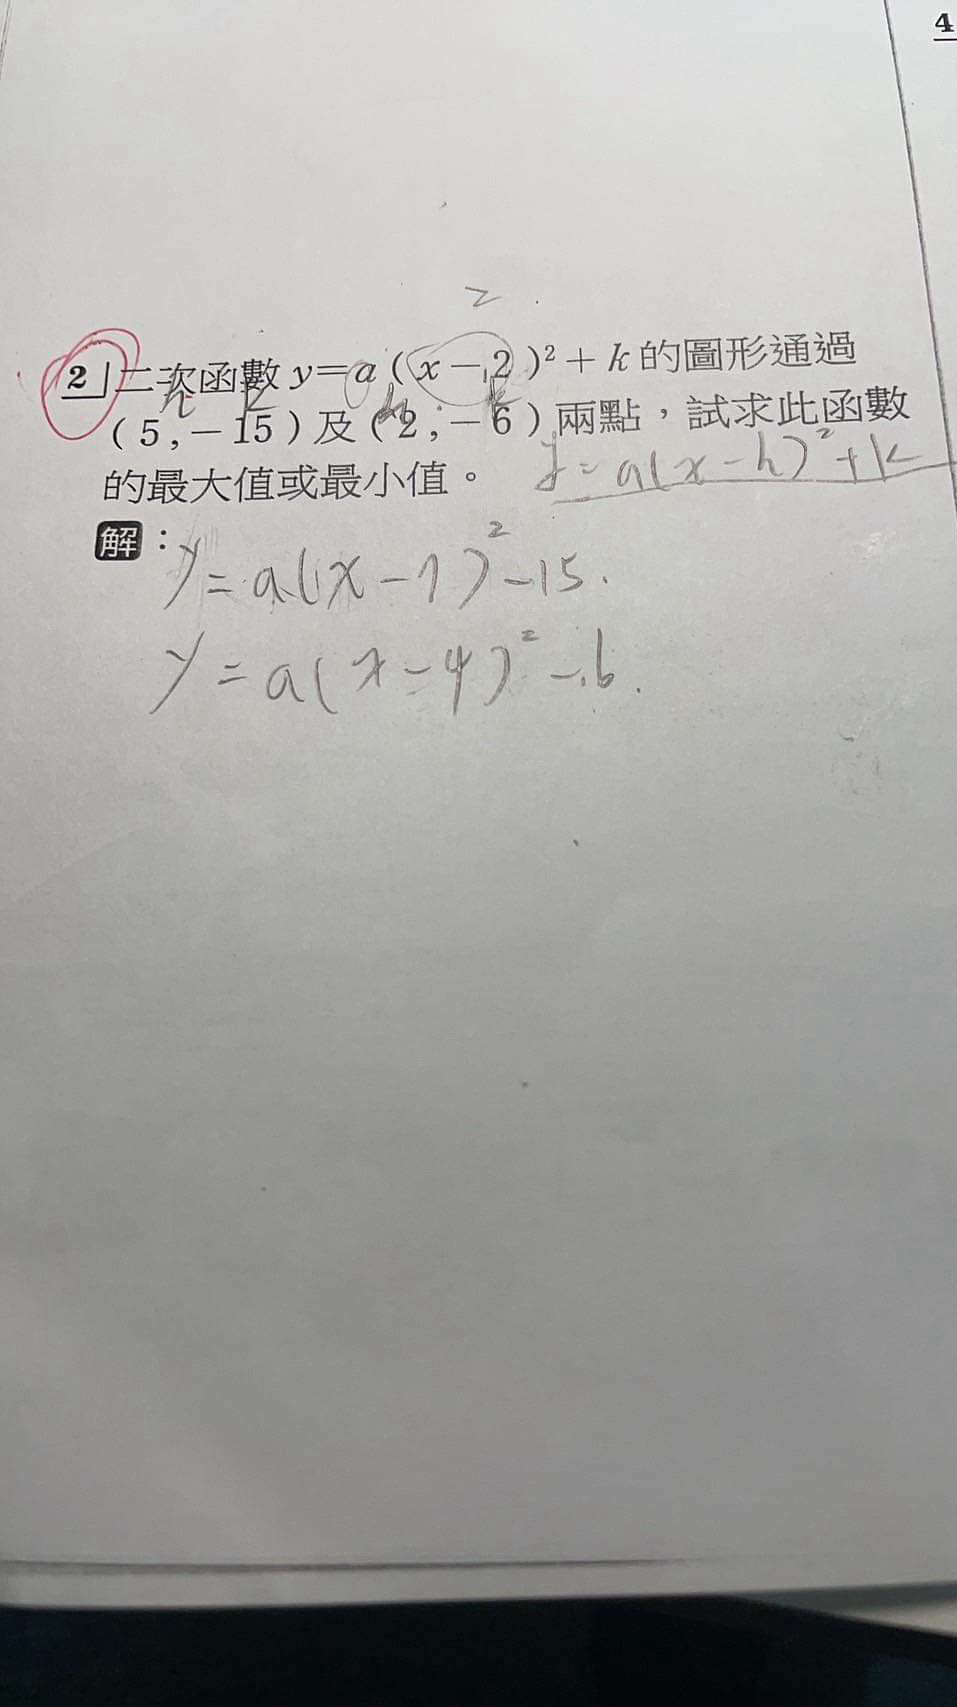 4
2
2 二次函數 y=a(x-2)²+k 的圖形通過
h k h k
(5,-15)及(2,-6)兩點,試求此函數
的最大值或最小值。 y=a(x-h)²+k
解:y=a(x-7)²-15.
y=a(x-4)²-6.